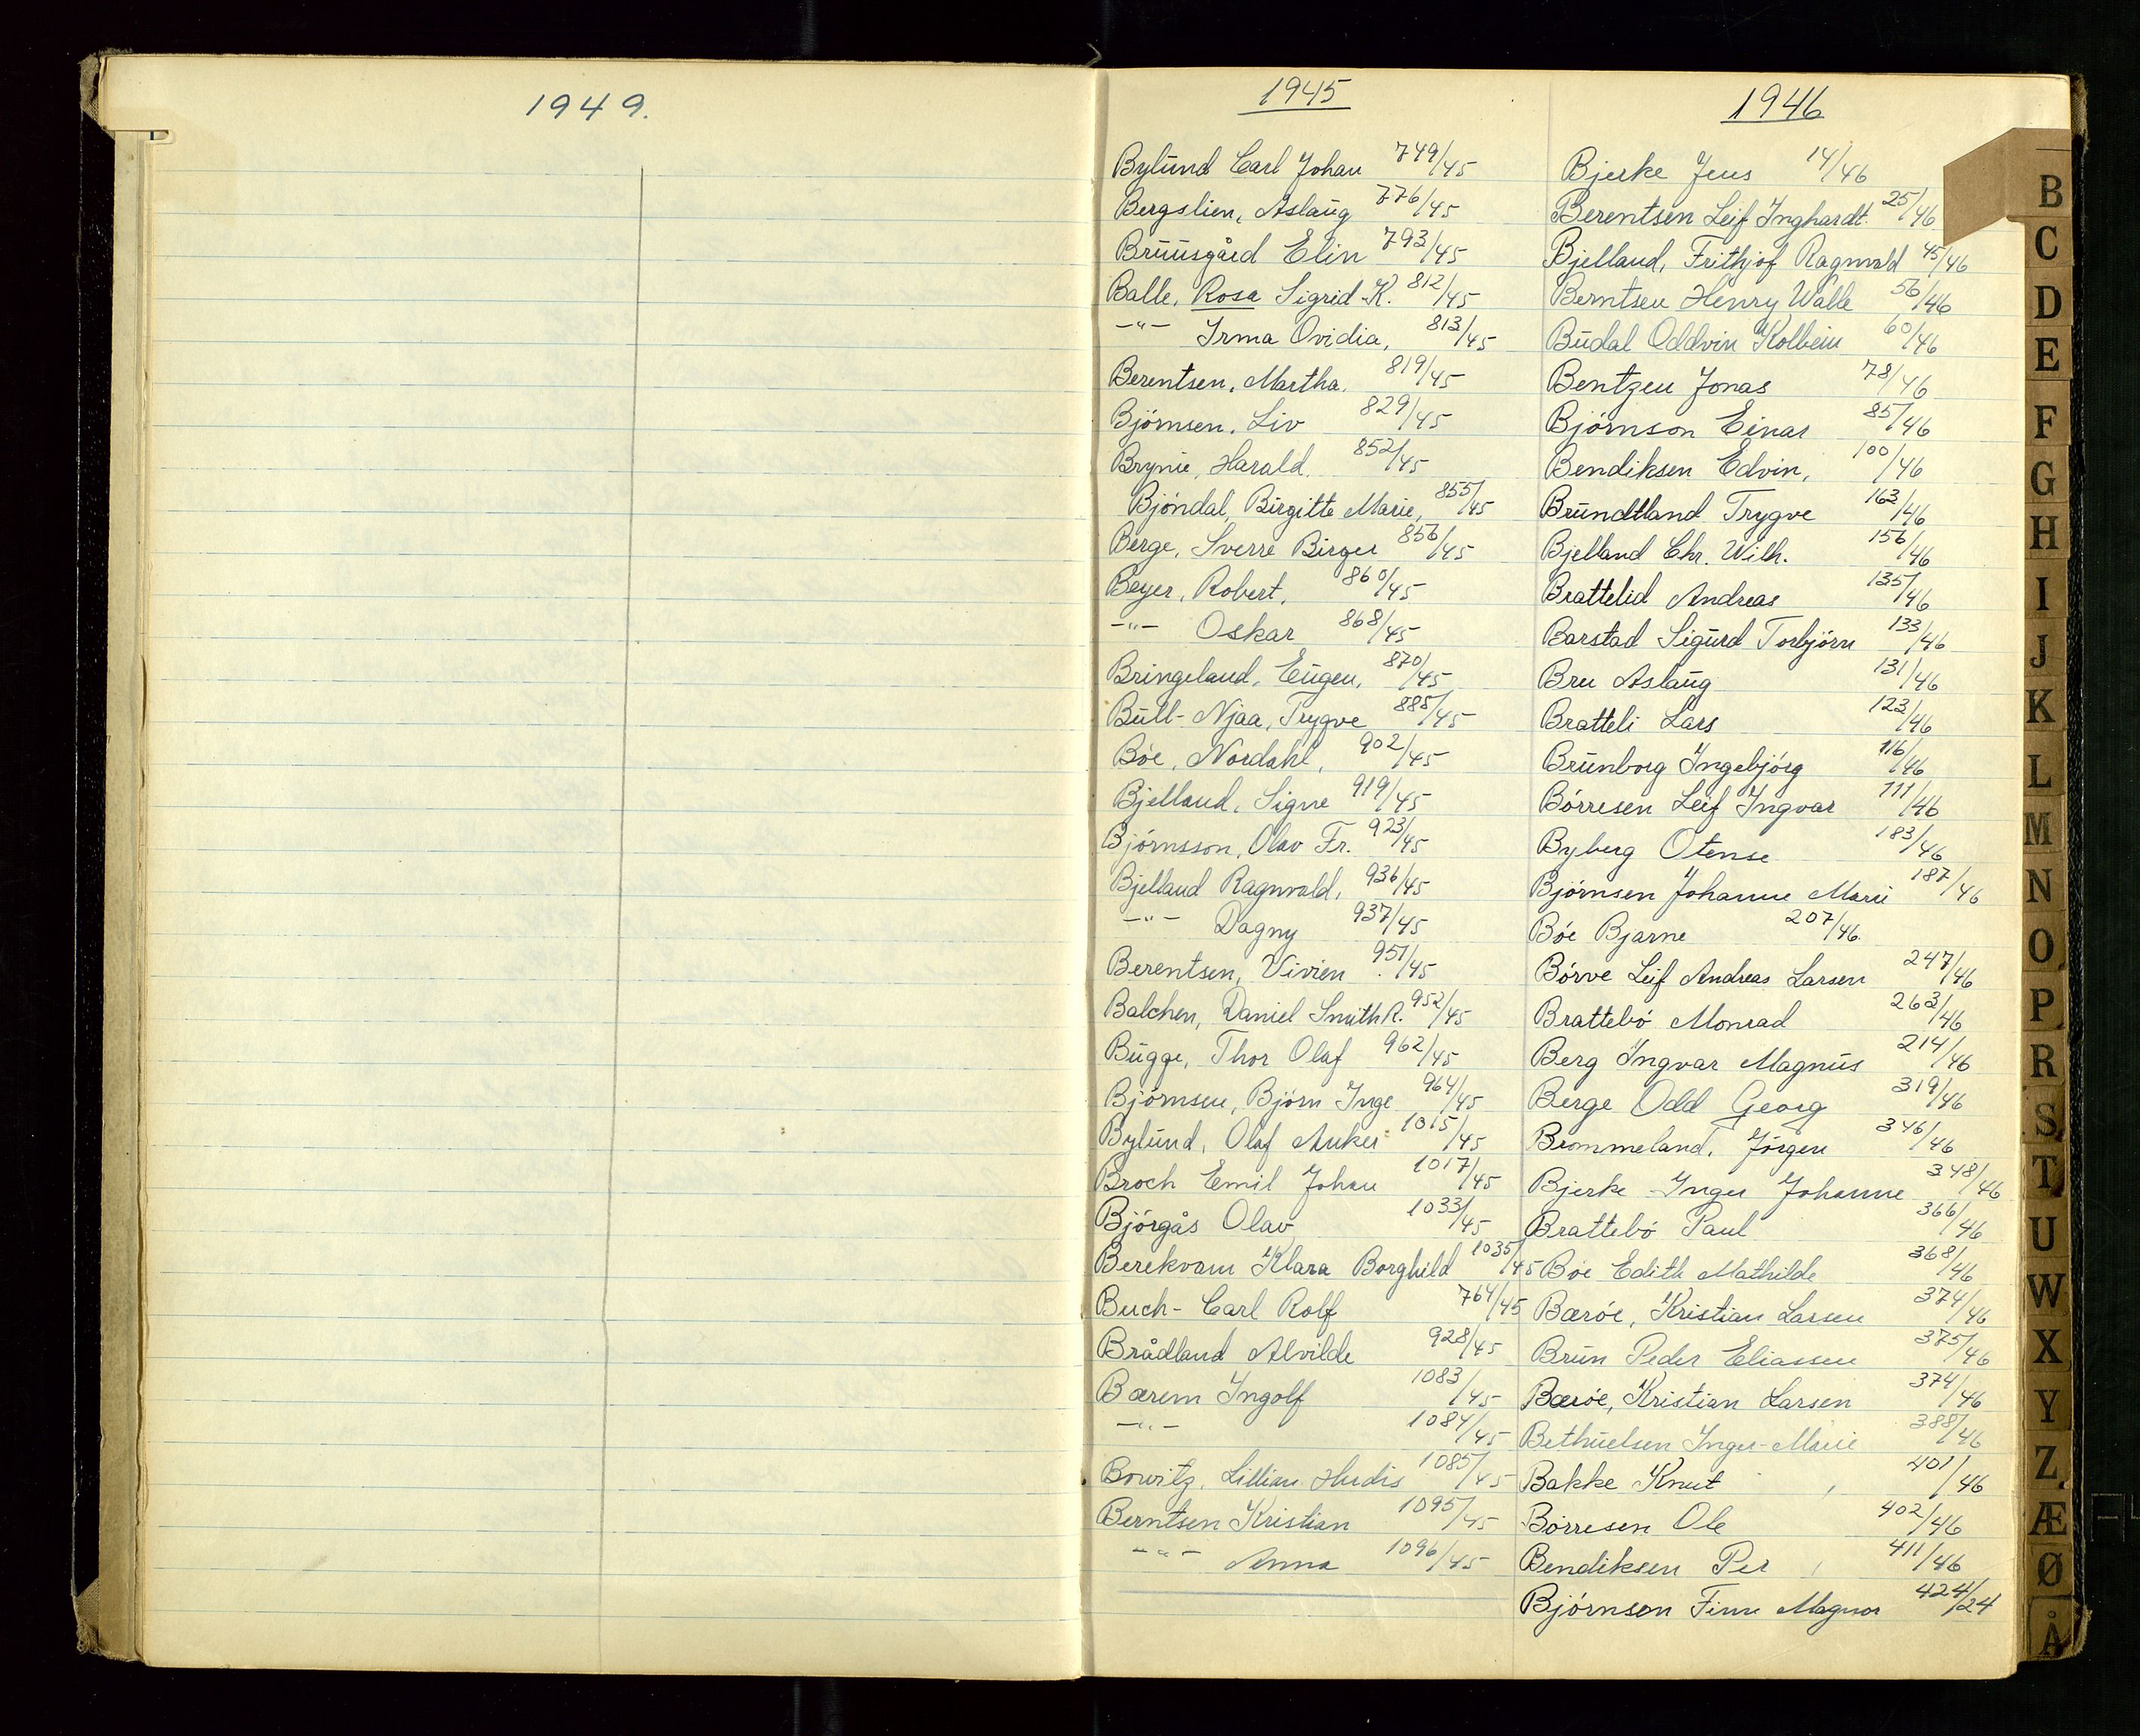 1949.
1945
Bylund Carl Johan 749/45
Bergslien, Aslaug 776/45
Bruusgård Elin 793/45
Balle, Rosa Sigrid K. 812/45
-"- Irma Ovidia, 813/45
Berentsen, Martha. 819/45
Björnsen, Liv 829/45
Brynie, Harald. 852/45
Bjöndal, Birgitte Marie, 855/45
Berge, Sverre Birger 856/45
Beyer, Robert, 860/45
-"- Oskar 868/45
Bringeland, Eugen, 870/45
Bull-Njaa, Trygve 885/45
Böe, Nordahl, 902/45
Bjelland, Signe 919/45
Björnsson, Olav Fr. 923/45
Bjelland Ragnvald, 936/45
-"- Dagny 937/45
Berentsen, Vivien 951/45
Balchen, Daniel Smith R. 952/45
Bugge, Thor Olaf 962/45
Björnsen, Björn Inge 964/45
Bylund, Olaf Anker 1015/45
Broch Emil Johan 1017/45
Björgås Olav 1033/45
Berekvam Klara Borghild 1035/45
Buch- Carl Rolf 764/45
Brådland Alvilde 928/45
Bærem Ingolf 1083/45
-"- 1084/45
Bowitz, Lillian 1085/45
Berntsen Kristian 1095/45
-"- Anna 1096/45
1946
Bjerke Jens 14/46
Berentsen Leif Inghardt. 25/46
Bjelland, Frithjof Ragnvald 45/46
Berntsen Henry Walle 56/46
Budal Oddvin Kolbein 60/46
Bentzen Jonas 78/46
Björnson Einar 85/46
Bendiksen Edvin, 100/46
Brundtland Trygve 163/46
Bjelland Chr. Wilh. 156/46
Brattelid Andreas 135/46
Barstad Sigurd Torbjörn 133/46
Bru Aslaug 131/46
Bratteli Lars 123/46
Brunborg Ingebjörg 116/46
Börresen Leif Ingvar 111/46
Byberg Otense 183/46
Björnsen Johanne Marie 187/46
Böe Bjarne 207/46.
Börve Leif Andreas Larsen 247/46
Brattebö Monrad 263/46
Berg Ingvar Magnus 214/46
Berge Odd Georg 319/46
Brommeland, Jörgen 346/46
Bjerke Inger Johanne 348/46
Brattebö Paul 366/46
Böe Edith Mathilde 368/46
Bæröe, Kristian Larsen 374/46
Brun Peder Eliassen 375/46
Bæröe, Kristian Larsen 374/46
Bethuelsen Inger-Marie 388/46
Bakke Knut, 401/46
Börresen Ole 402/46
Bendiksen Per, 411/46
Björnson Finn Magnor 424/24
B
C
D
E
F
G
H
I
J
K
L
M
N
O
P
R
S
T
U
W
X
Y
Z
Æ
Ø
Å